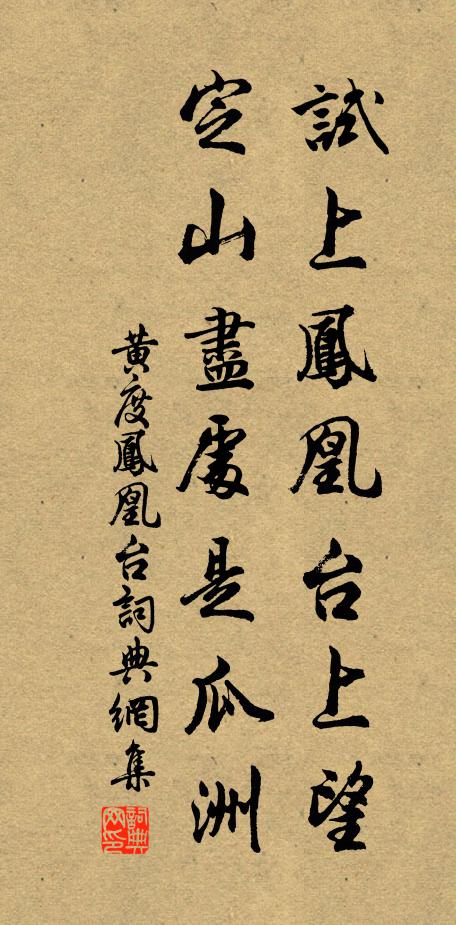 試上鳳凰台上望
定山盡處是瓜洲
黄度鳳凰台詞典網集
詞典网印